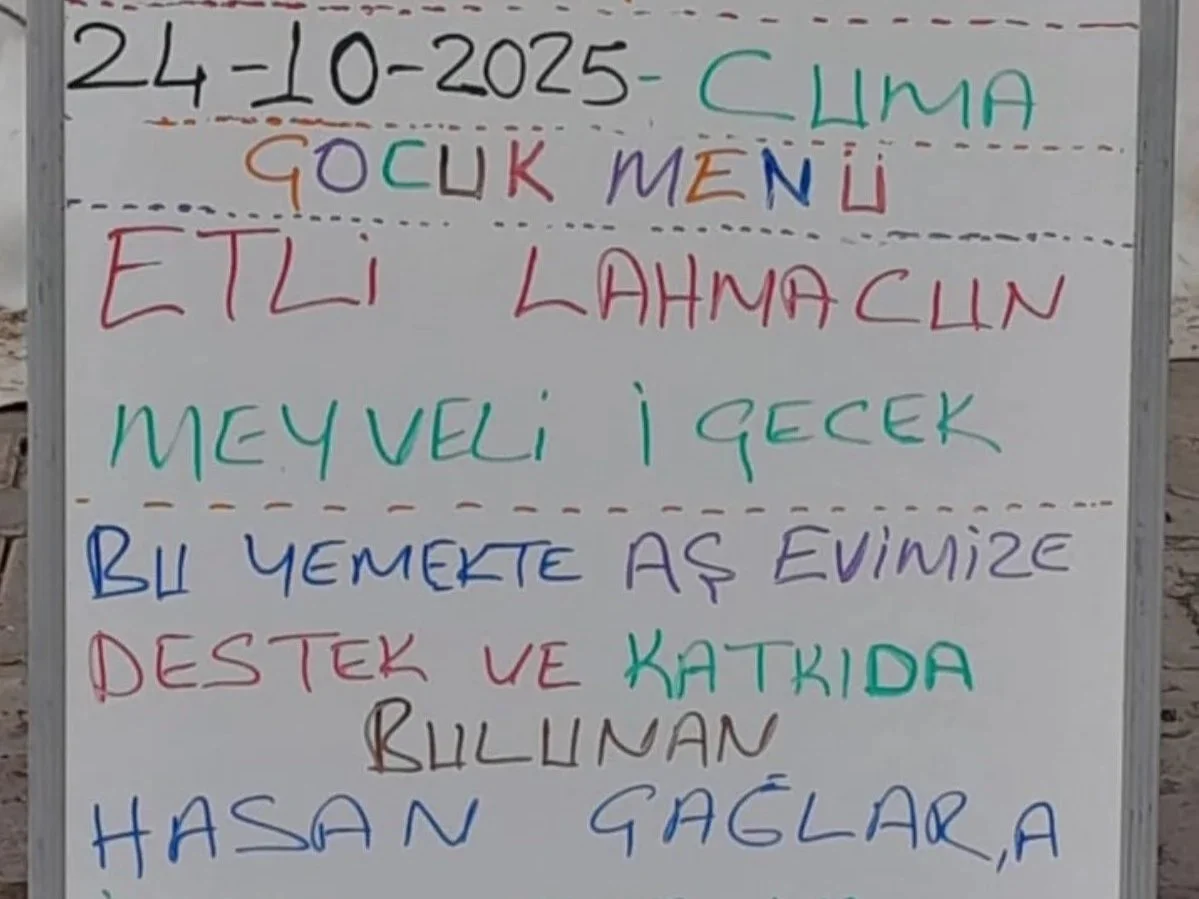 24-10-2025- CUMA
ÇOCUK MENÜ
ETLİ LAHMACUN
MEYVELİ İÇECEK
BU YEMEKTE AŞ EVİMİZE
DESTEK VE KATKIDA
BULUNAN
HASAN ÇAĞLAR,A